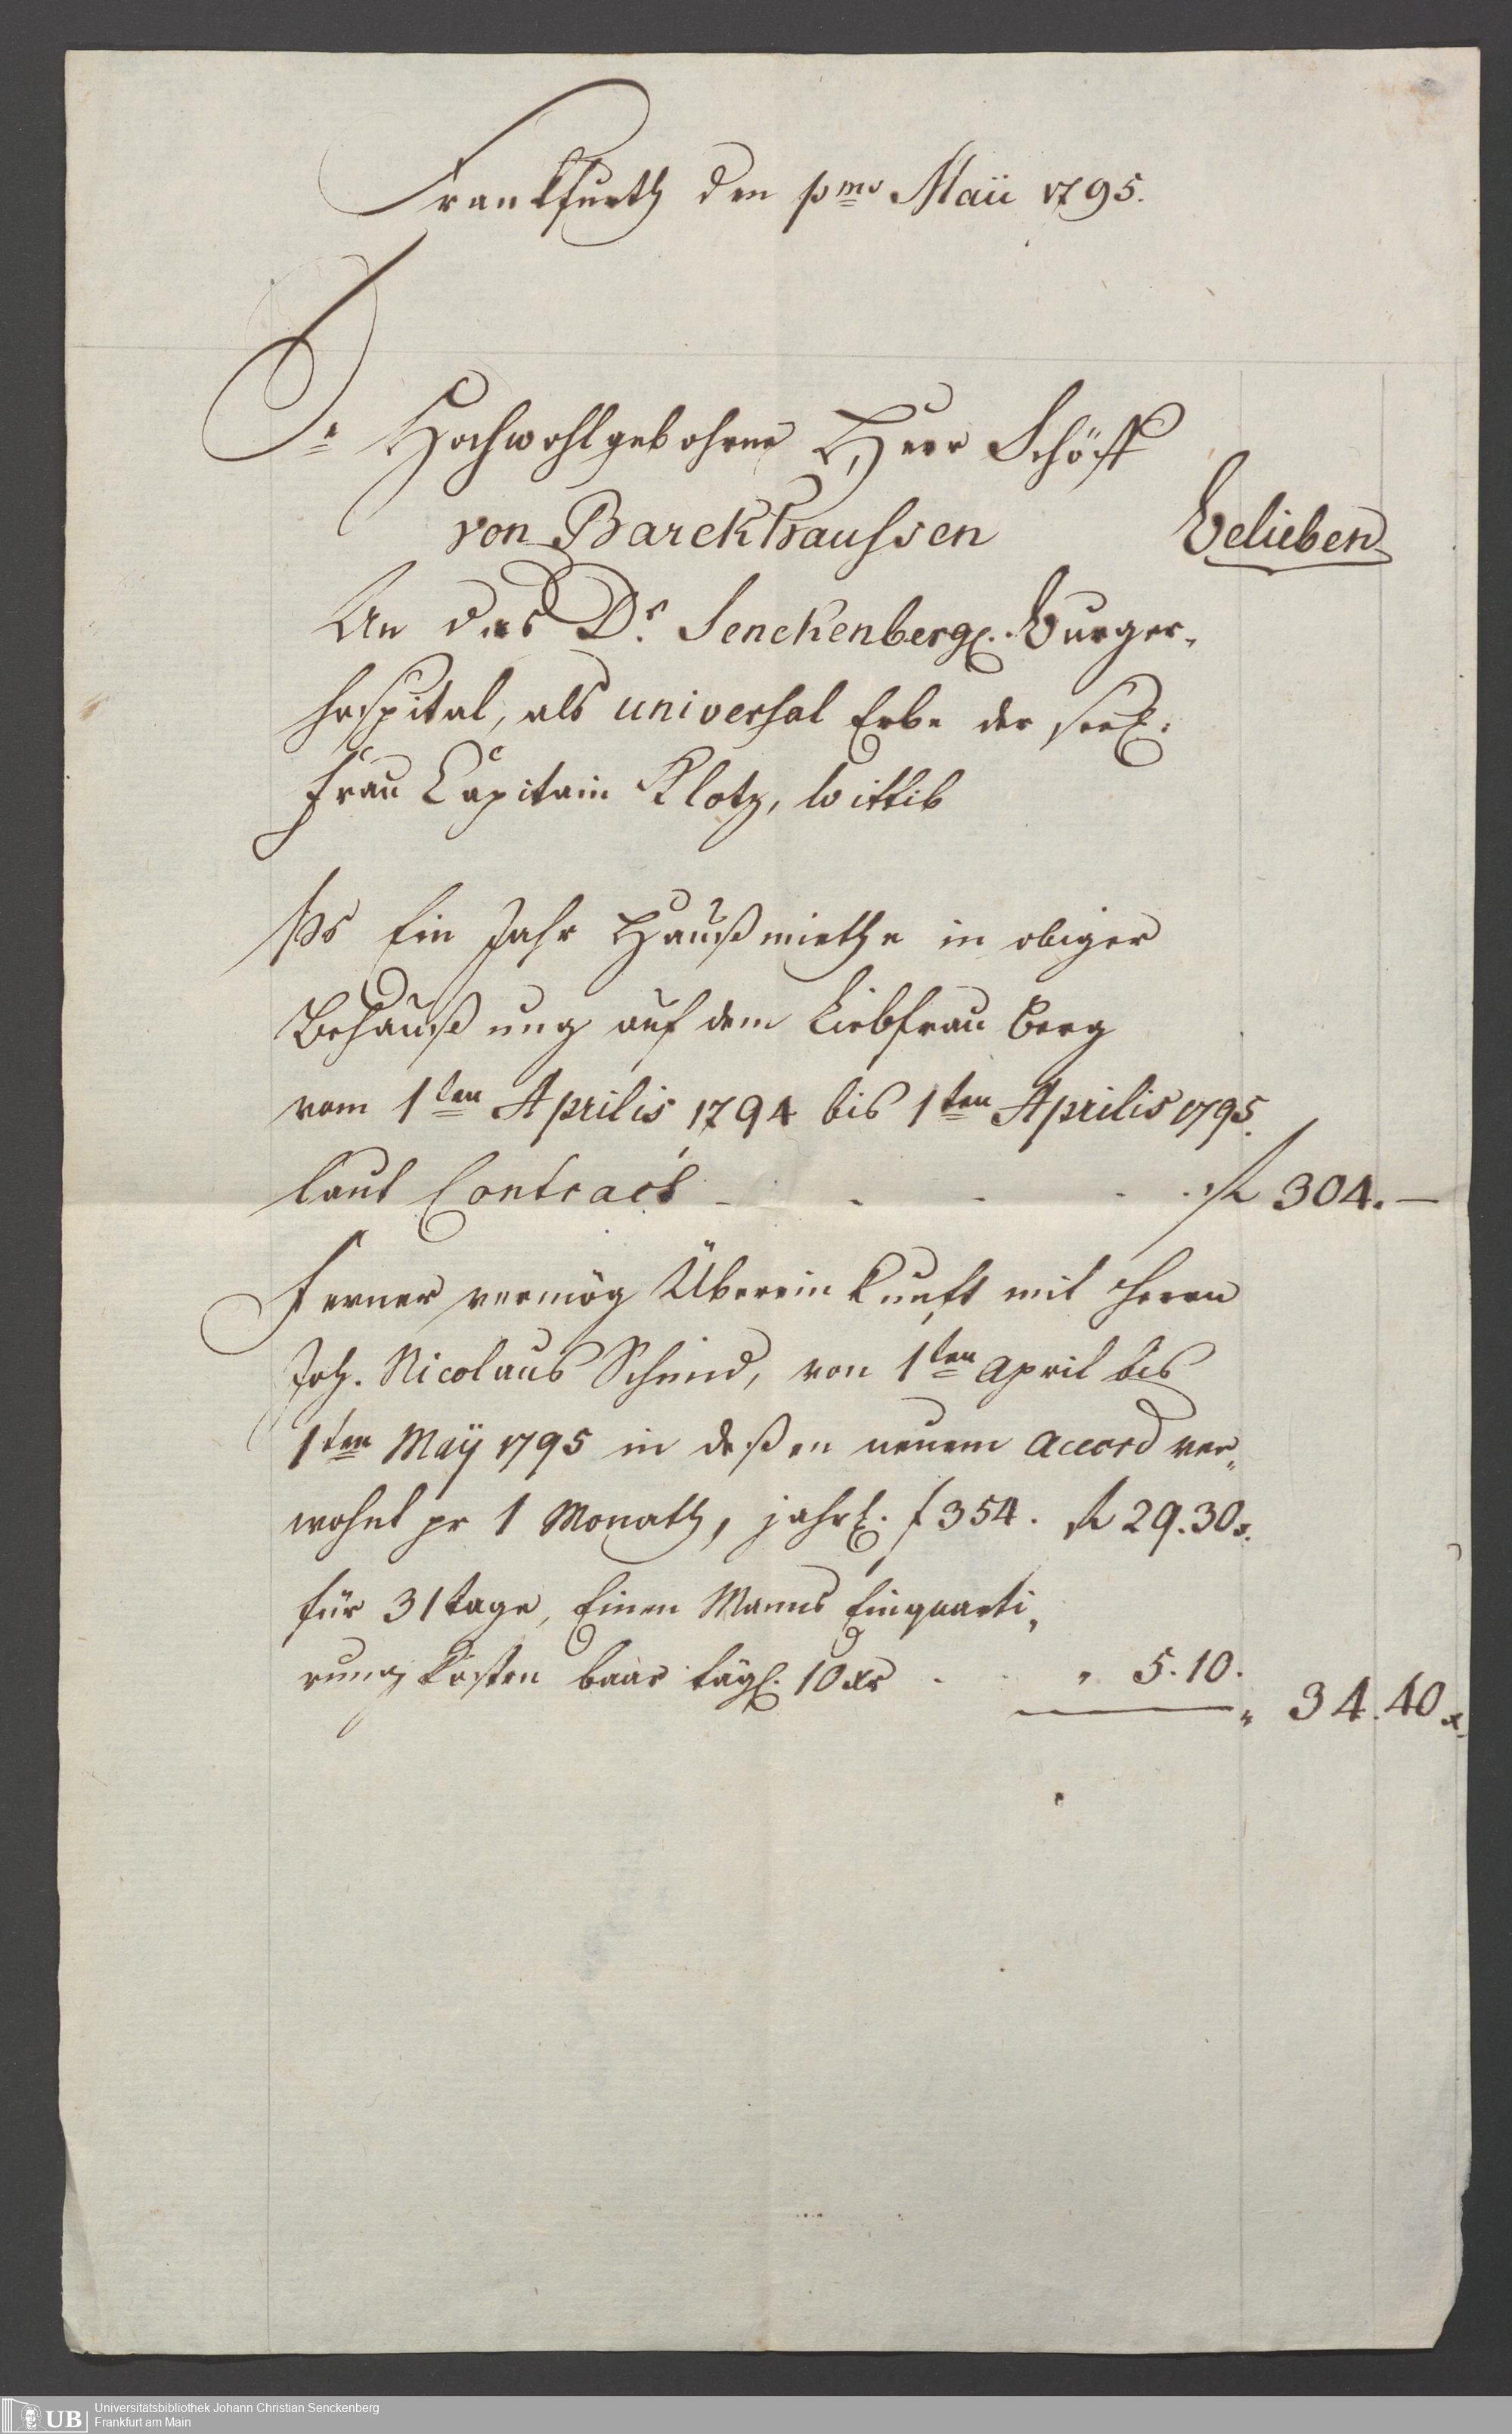 Franckfurth den pmo Maii 1795.
Sr Hochwohlgebohrne Herr Schöff
von Barckhaussen belieben
An das Dr. Senckenbergl. Burger-
hospital, als universal Erbe der seel:
Frau Capitain Klotz, Wittib
Ein Jahr Haußmiethe in obiger
Behaußung auf dem Liebfrau Berg
vom 1ten Aprilis 1794 bis 1ten Aprilis 1795.
laut Contract - - - - . f 304. —
Ferner vermög Übereinkunft mit Herrn
Joh. Nicolaus Schmid, von 1ten April bis
1ten Maÿ 1795 in deßen neuem accord ver-
wohnt pr 1 Monath, jahrl. f 354. f 29.30x.
für 31 tage, Einen Manns Einquarti-
rung kosten baar tägl. 10 xr - - " 5.10.
" 34.40x
Universitätsbibliothek Johann Christian Senckenberg
Frankfurt am Main
UB